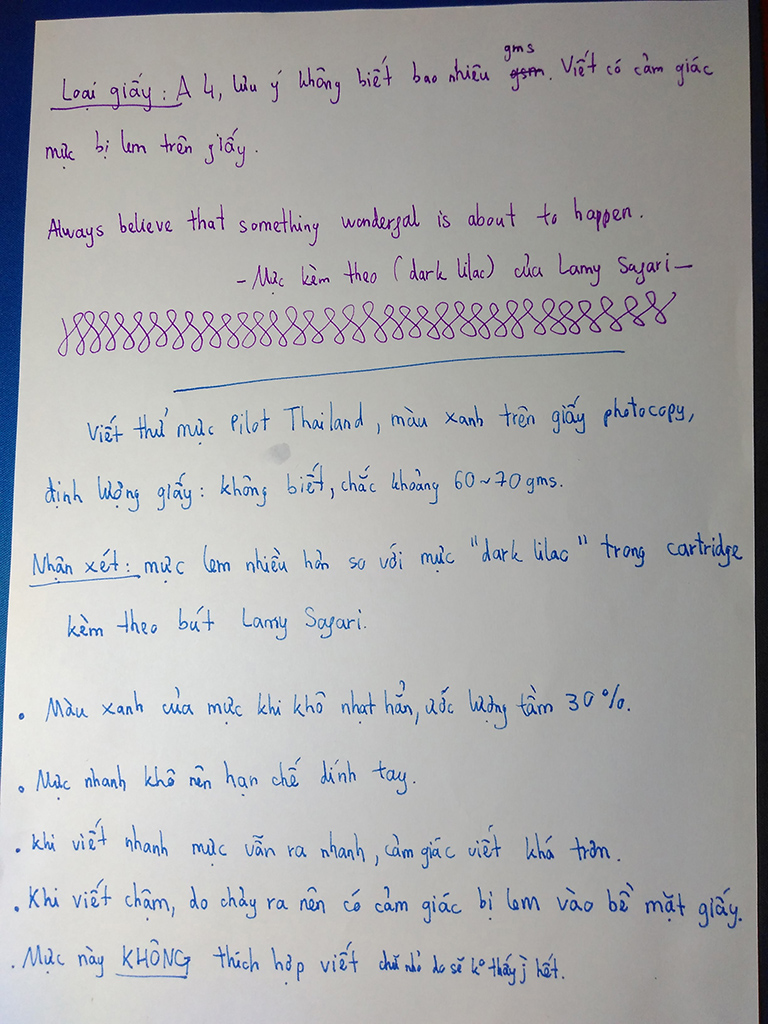 Loại giấy: A4, lưu ý không biết bao nhiêu gsm gms. Viết có cảm giác
mực bị lem trên giấy.
Always believe that something wonderful is about to happen.
- Mực kèm theo (dark lilac) của Lamy Safari -
Viết thử mực Pilot Thailand, màu xanh trên giấy photocopy,
định lượng giấy: không biết, chắc khoảng 60~70gms.
Nhận xét: mực lem nhiều hơn so với mực "dark lilac" trong cartridge
kèm theo bút Lamy Safari.
• Màu xanh của mực khi khô nhạt hẳn, ước lượng tầm 30%.
• Mực nhanh khô nên hạn chế dính tay.
• Khi viết nhanh mực vẫn ra nhanh, cảm giác viết khá trơn.
• Khi viết chậm, do chảy ra nên có cảm giác bị lem vào bề mặt giấy.
• Mực này KHÔNG thích hợp viết chữ nhỏ do sẽ ko thấy j hết.